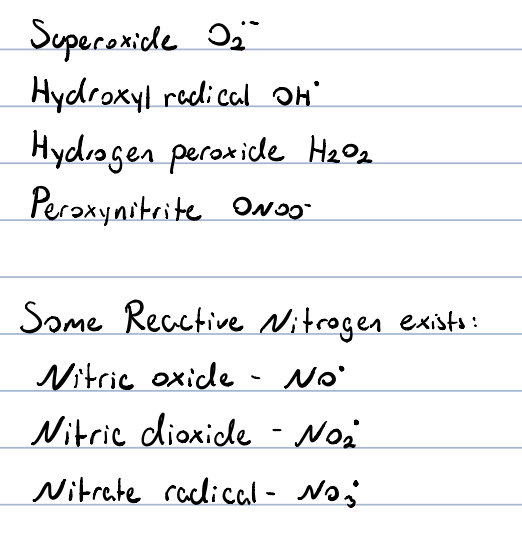 Superoxide O₂˙⁻
Hydroxyl radical OH˙
Hydrogen peroxide H₂O₂
Peroxynitrite ONOO⁻
Some Reactive Nitrogen exists:
Nitric oxide - NO˙
Nitric dioxide - NO₂˙
Nitrate radical - NO₃˙